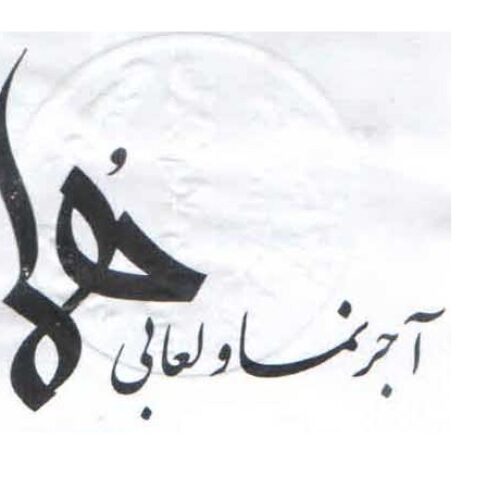 هُما
آجرنما و لعابی